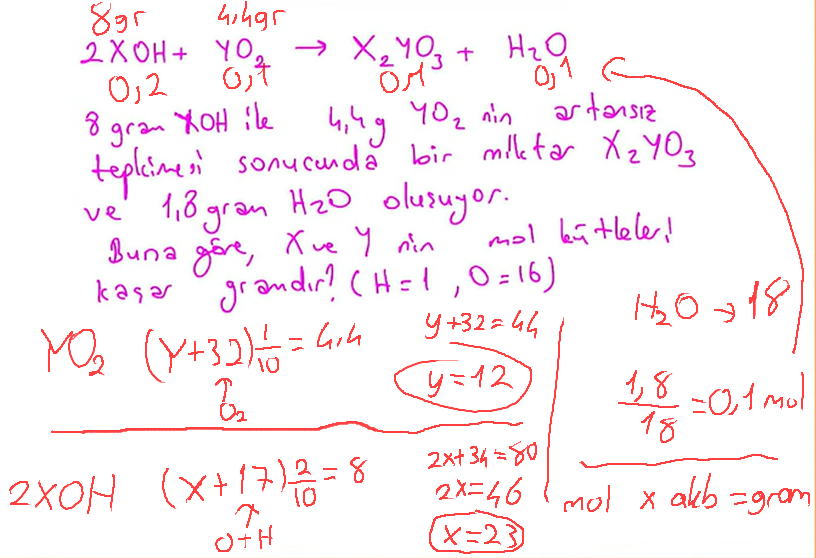 8gr 4,4gr
2XOH + YO₂ → X₂YO₃ + H₂O
0,2 0,1 0,1 0,1
8 gram XOH ile 4,4g YO₂ nin artansız
tepkimesi sonucunda bir miktar X₂YO₃
ve 1,8 gram H₂O oluşuyor.
Buna göre, X ve Y nin mol kütleleri
kaçar gramdır? (H=1, O=16)
YO₂ (Y+32) 1/10 = 4,4
O₂
y+32=44
y=12
2XOH (X+17) 2/10 = 8
O+H
2x+34=80
2x=46
x=23
H₂O → 18
1,8/18 = 0,1 mol
mol x akb = gram